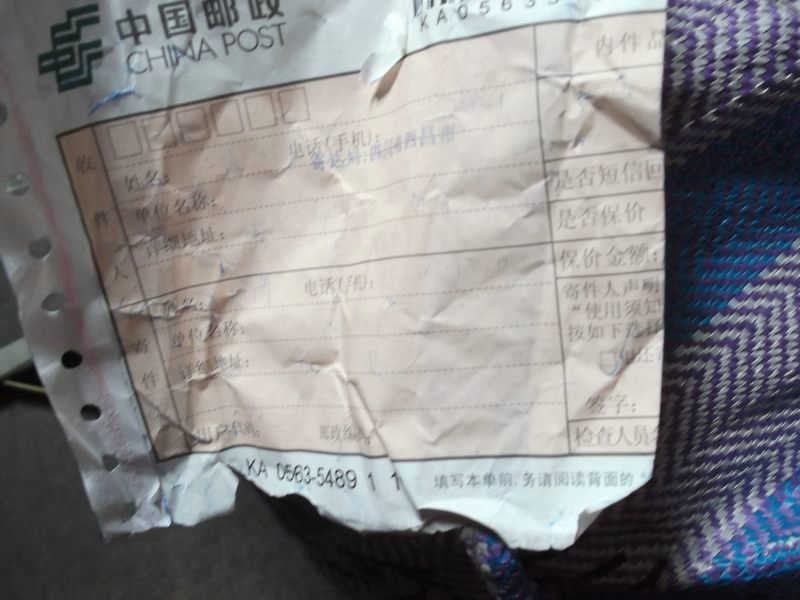 中国邮政
CHINA POST
KA0563
内件品
收件人
电话(手机):
姓名:
单位名称:
详细地址:
是否短信回
是否保价
保价金额:
寄件
姓名:
电话(手机):
单位名称:
详细地址:
寄件人声明
"使用须知
按如下选择
签字:
用户代码:
邮政编码:
检查人员
KA 0563-5489 1 1
填写本单前,务请阅读背面的"